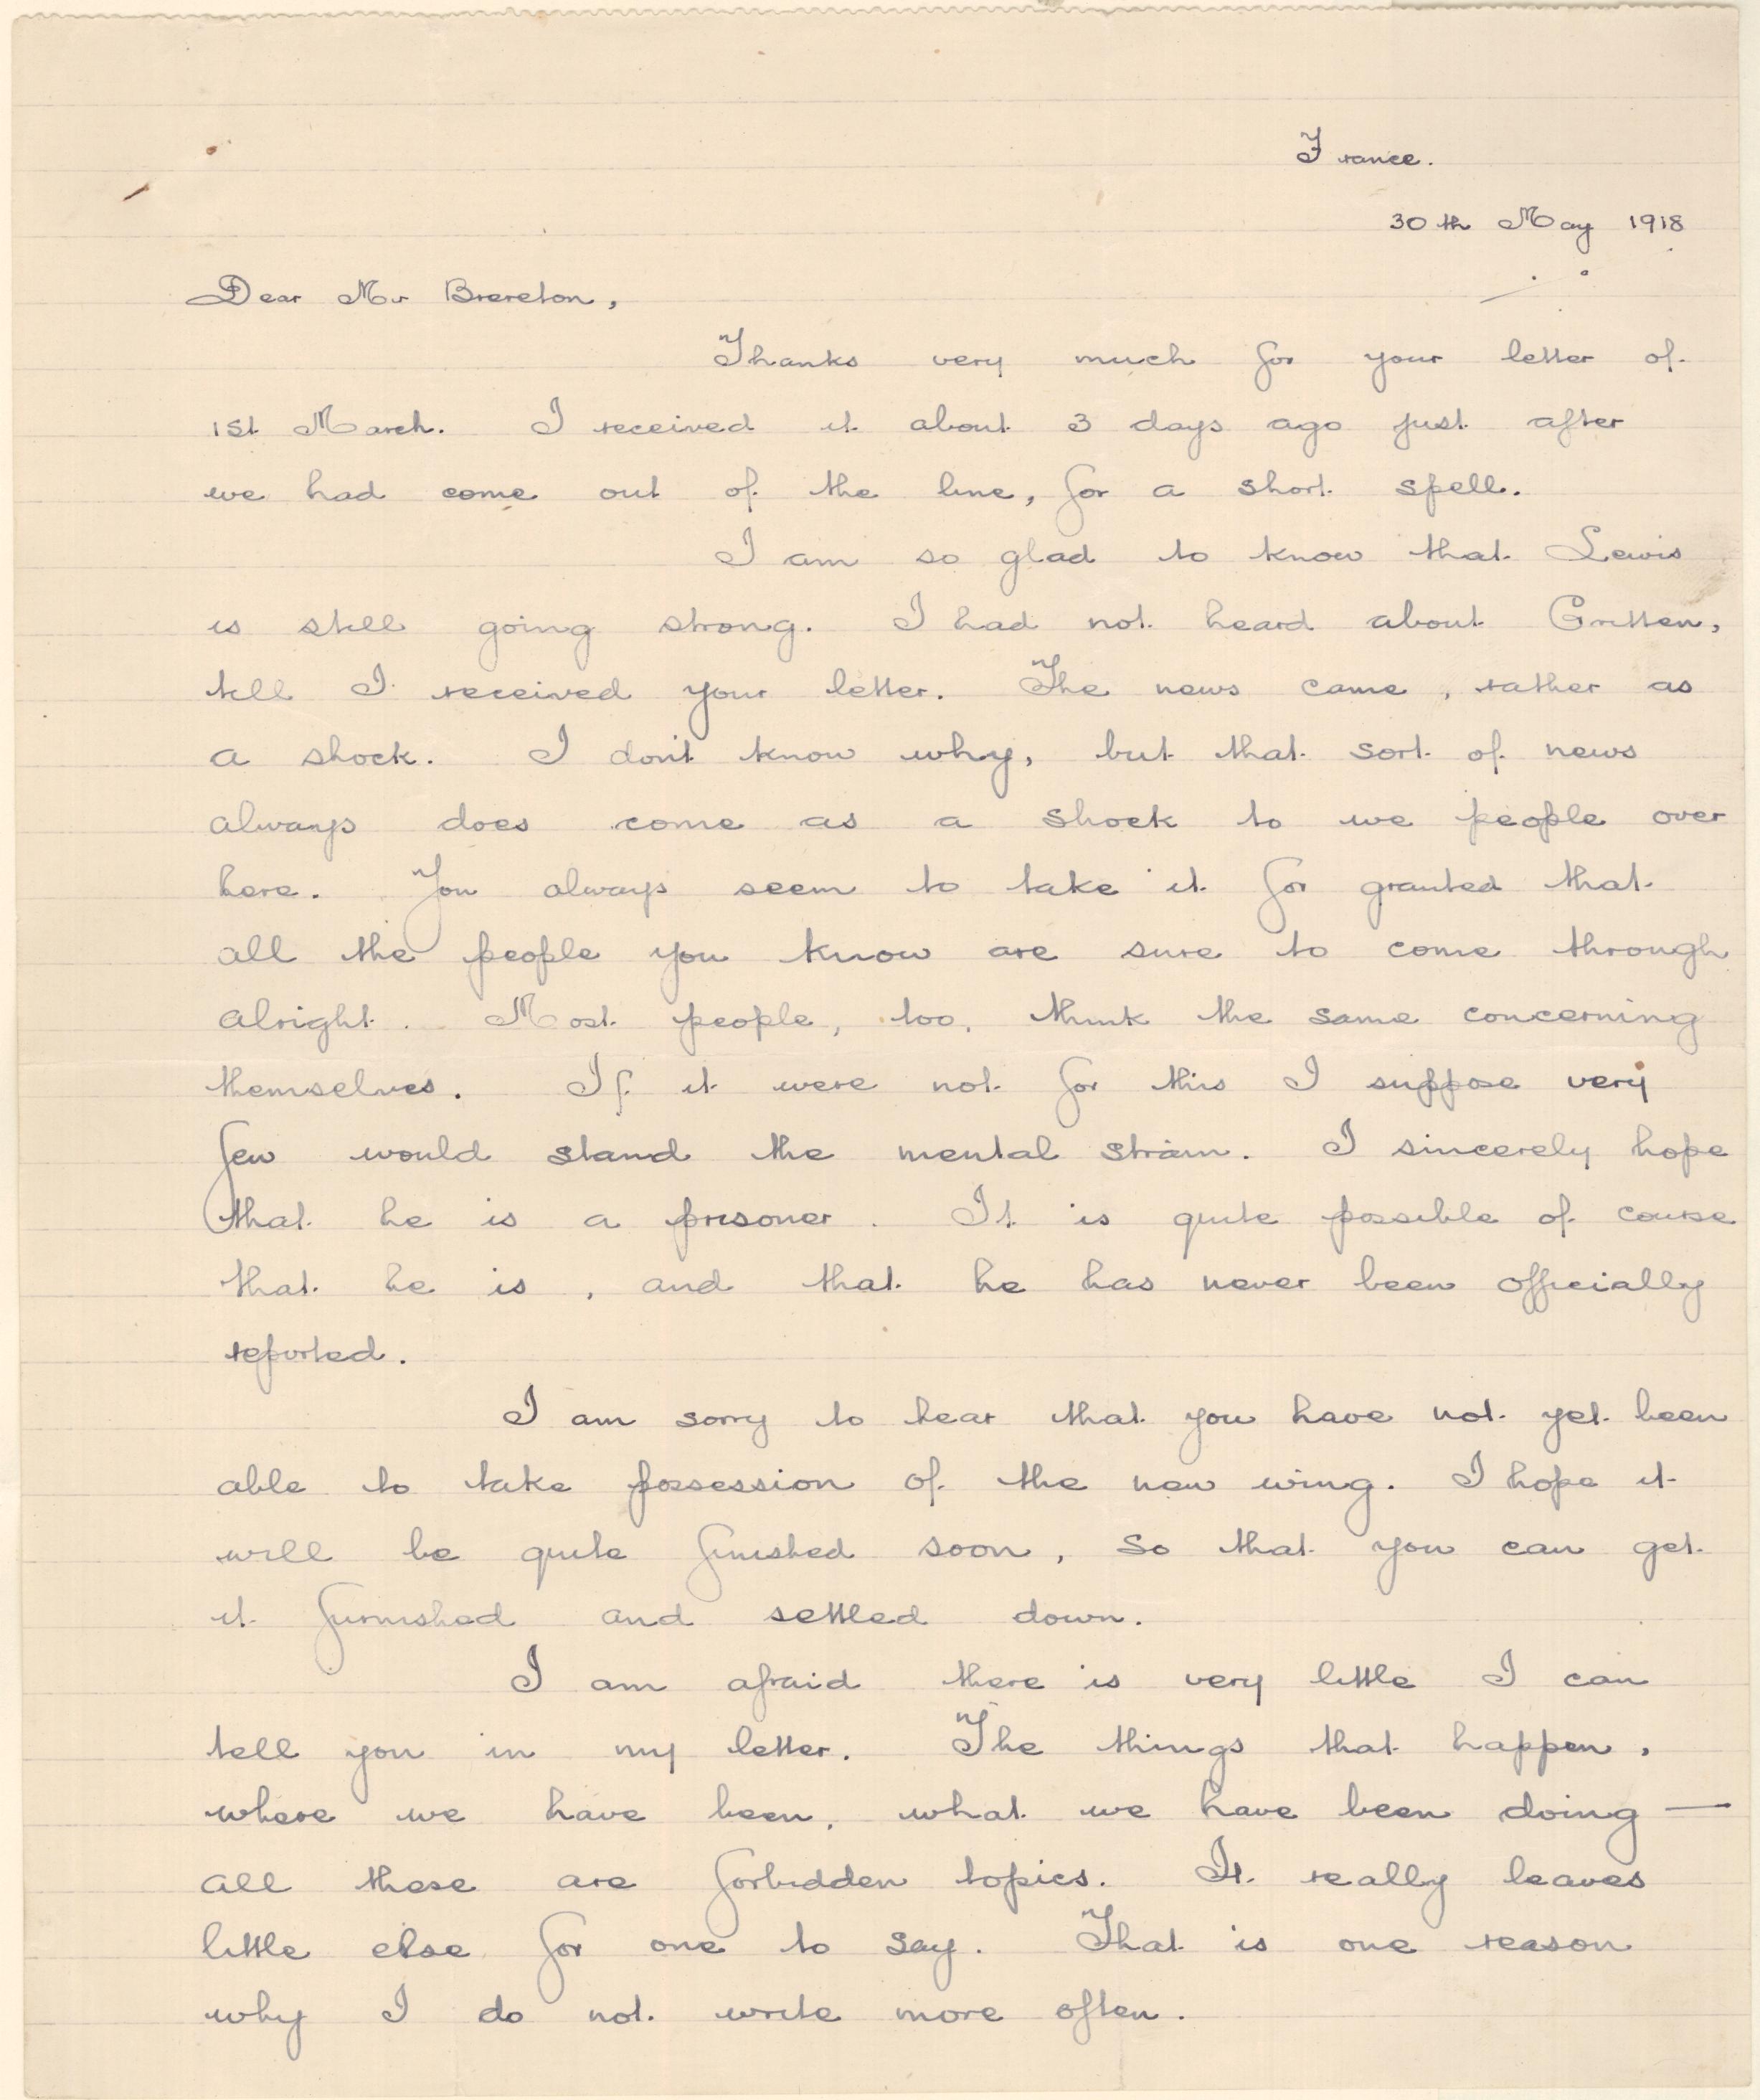 France.
30th May 1918
Dear Mr Brereton,
Thanks very much for your letter of
1st March. I received it about 3 days ago just after
we had come out of the line, for a short spell.
I am so glad to know that Lewis
is still going strong. I had not heard about Gritten,
till I received your letter. The news came, rather as
a shock. I don't know why, but that sort of news
always does come as a shock to we people over
here. You always seem to take it for granted that
all the people you know are sure to come through
alright. Most people, too, think the same concerning
themselves. If it were not for this I suppose very
few would stand the mental strain. I sincerely hope
that he is a prisoner. It is quite possible of course
that he is, and that he has never been officially
reported.
I am sorry to hear that you have not yet been
able to take possession of the new wing. I hope it
will be quite finished soon, so that you can get
it furnished and settled down.
I am afraid there is very little I can
tell you in my letter. The things that happen,
where we have been, what we have been doing —
all these are forbidden topics. It really leaves
little else for one to say. That is one reason
why I do not write more often.